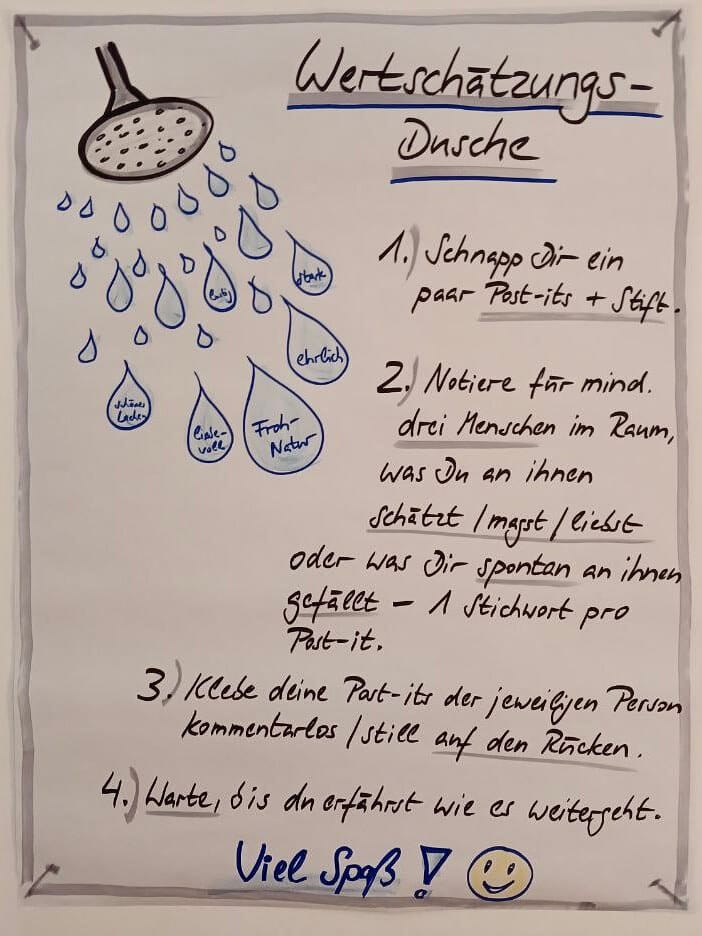 Wertschätzungs-
Dusche
stark
lustig
ehrlich
schönes
Lachen
liebe-
voll
Froh-
Natur
1.) Schnapp Dir ein
paar Post-its + Stift.
2.) Notiere für mind.
drei Menschen im Raum,
was Du an ihnen
schätzt / magst / liebst
oder was Dir spontan an ihnen
gefällt – 1 Stichwort pro
Post-it.
3.) Klebe deine Post-its der jeweiligen Person
kommentarlos / still auf den Rücken.
4.) Warte, bis du erfährst wie es weitergeht.
Viel Spaß!